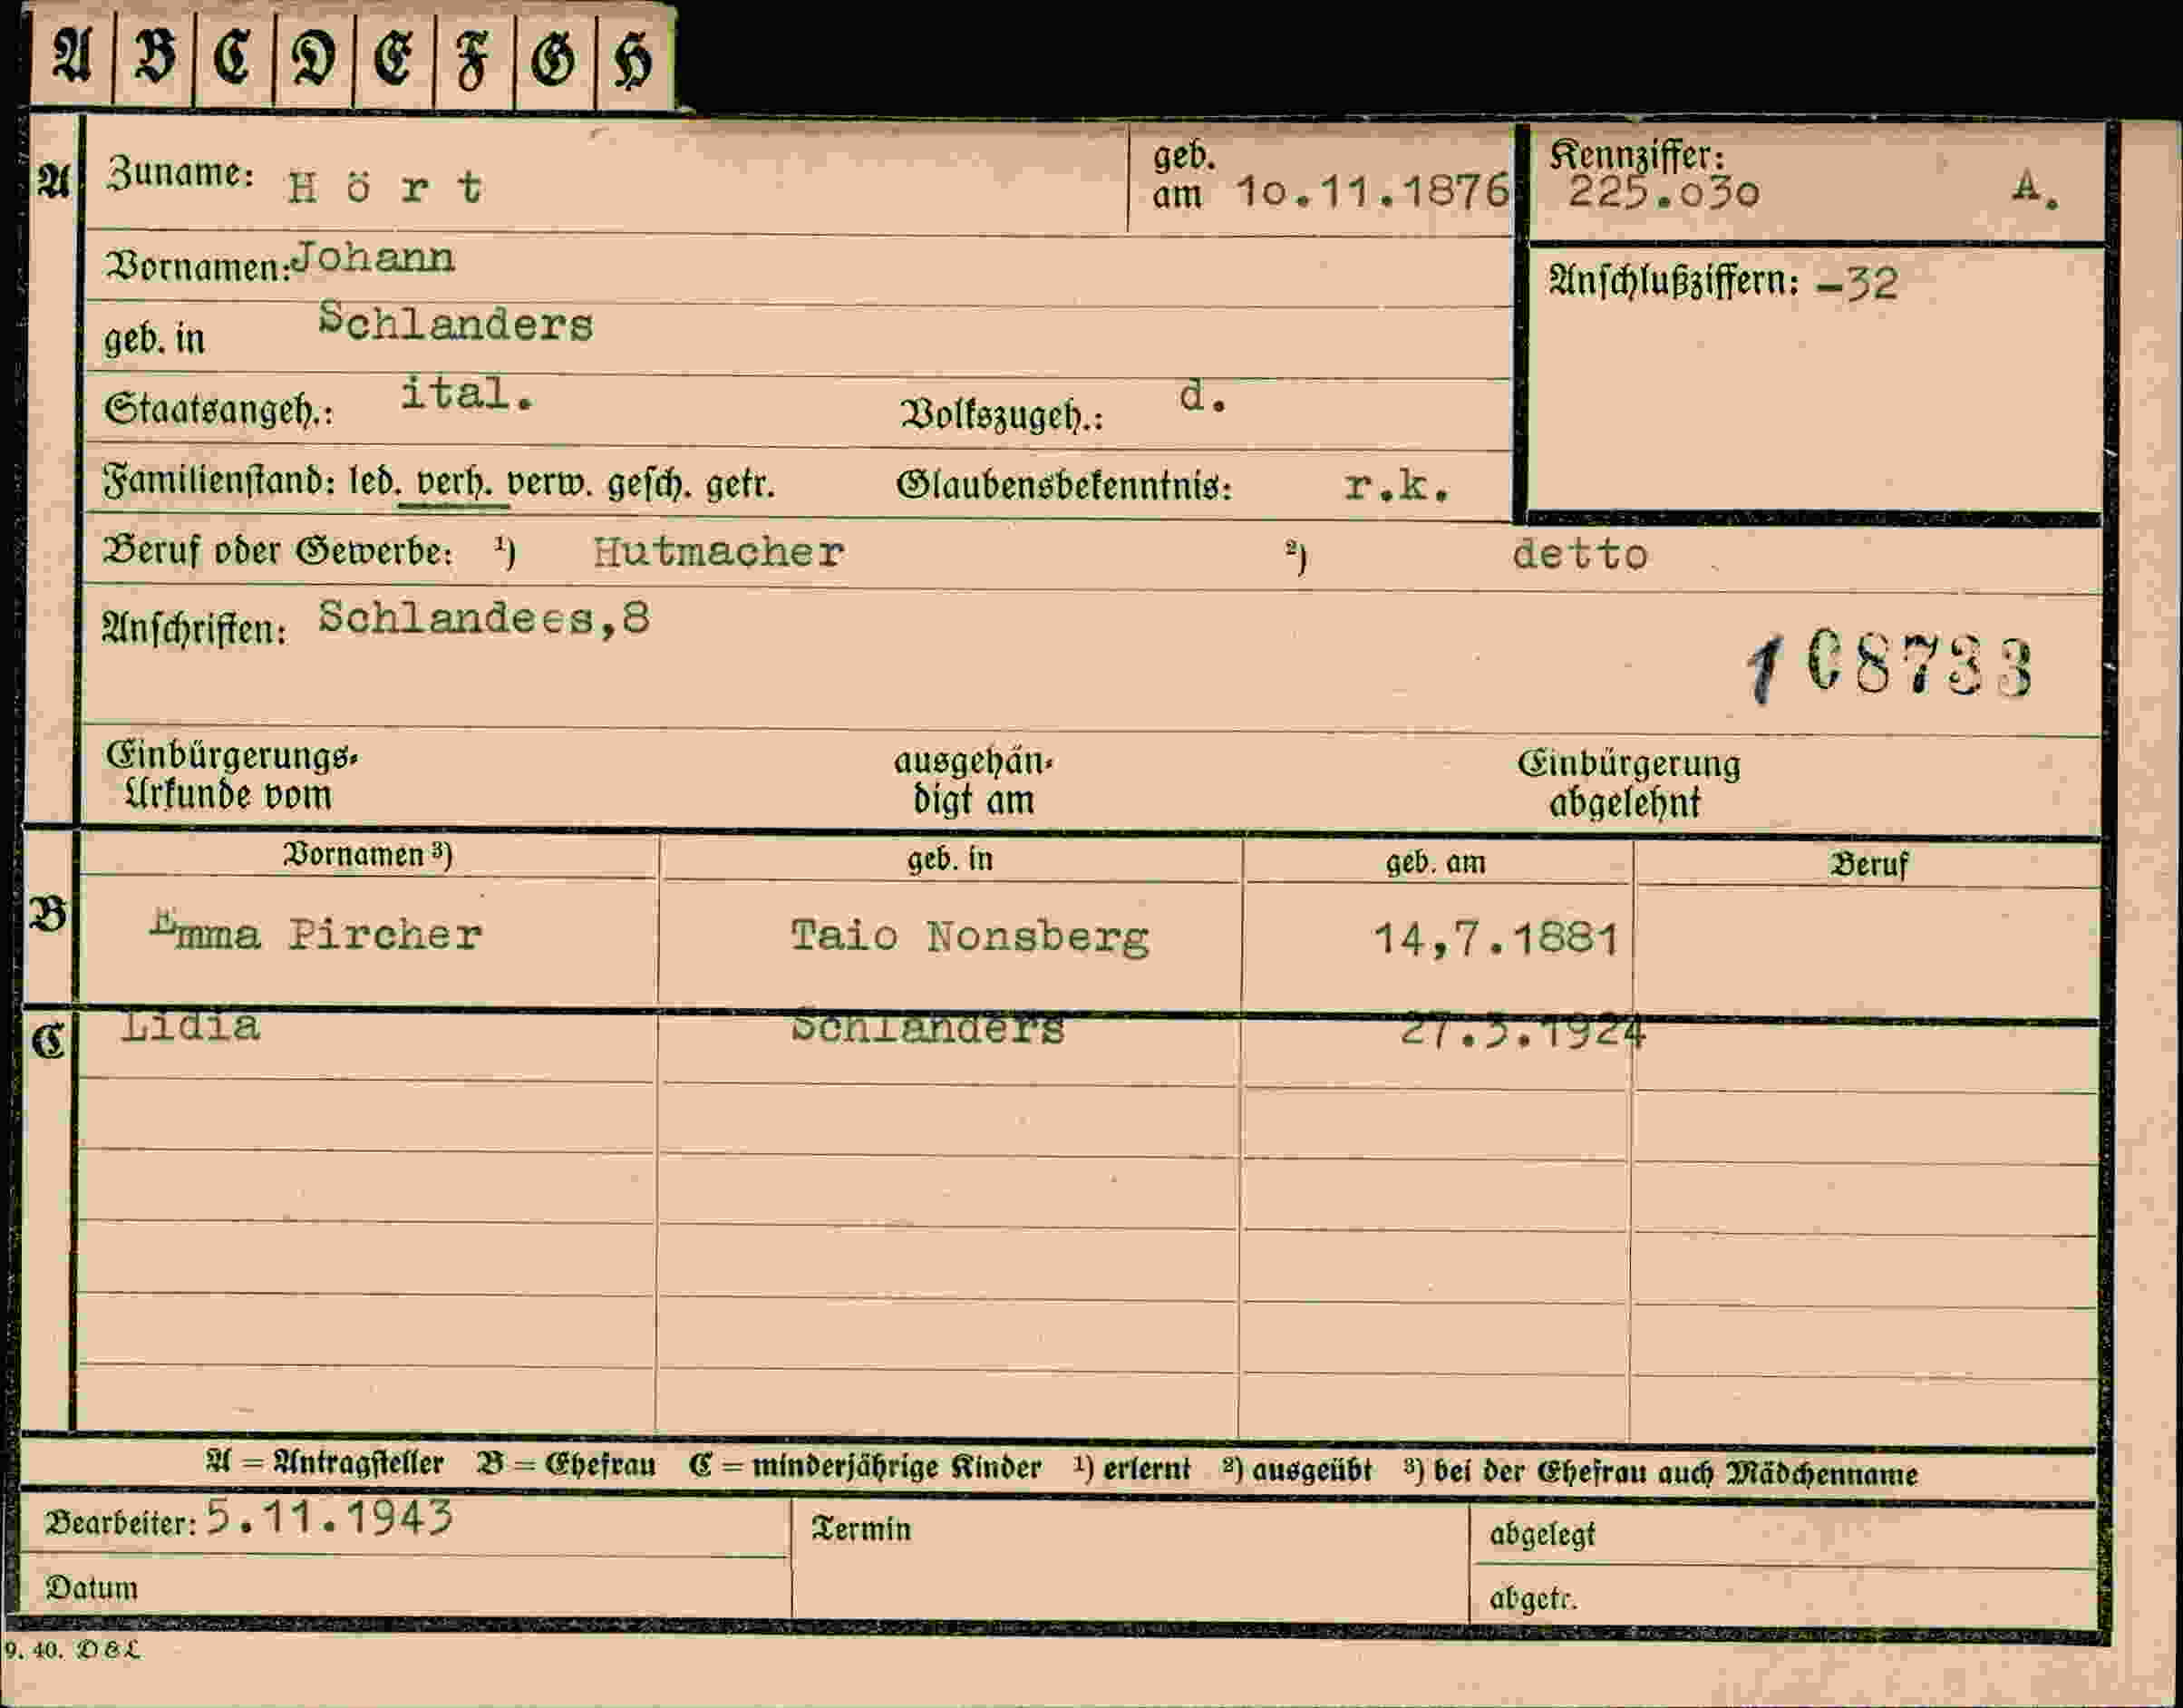 A B C D E F G H
A Zuname: Hört geb. am 10.11.1876 Kennziffer: 225.030 A.
Vornamen: Johann Anschlußziffern: -32
geb. in Schlanders
Staatsangeh.: ital. Volkszugeh.: d.
Familienstand: led. verh. verw. gesch. getr. Glaubensbekenntnis: r.k.
Beruf oder Gewerbe: ¹) Hutmacher ²) detto
Anschriften: Schlandees,8
108733
Einbürgerungs- ausgehän- Einbürgerung
Urkunde vom digt am abgelehnt
Vornamen ³) geb. in geb. am Beruf
B Emma Pircher Taio Nonsberg 14,7.1881
C Lidia Schlanders 27.3.1924
A = Antragsteller B = Ehefrau C = minderjährige Kinder ¹) erlernt ²) ausgeübt ³) bei der Ehefrau auch Mädchenname
Bearbeiter: 5.11.1943 Termin abgelegt
Datum abgetr.
9. 40.